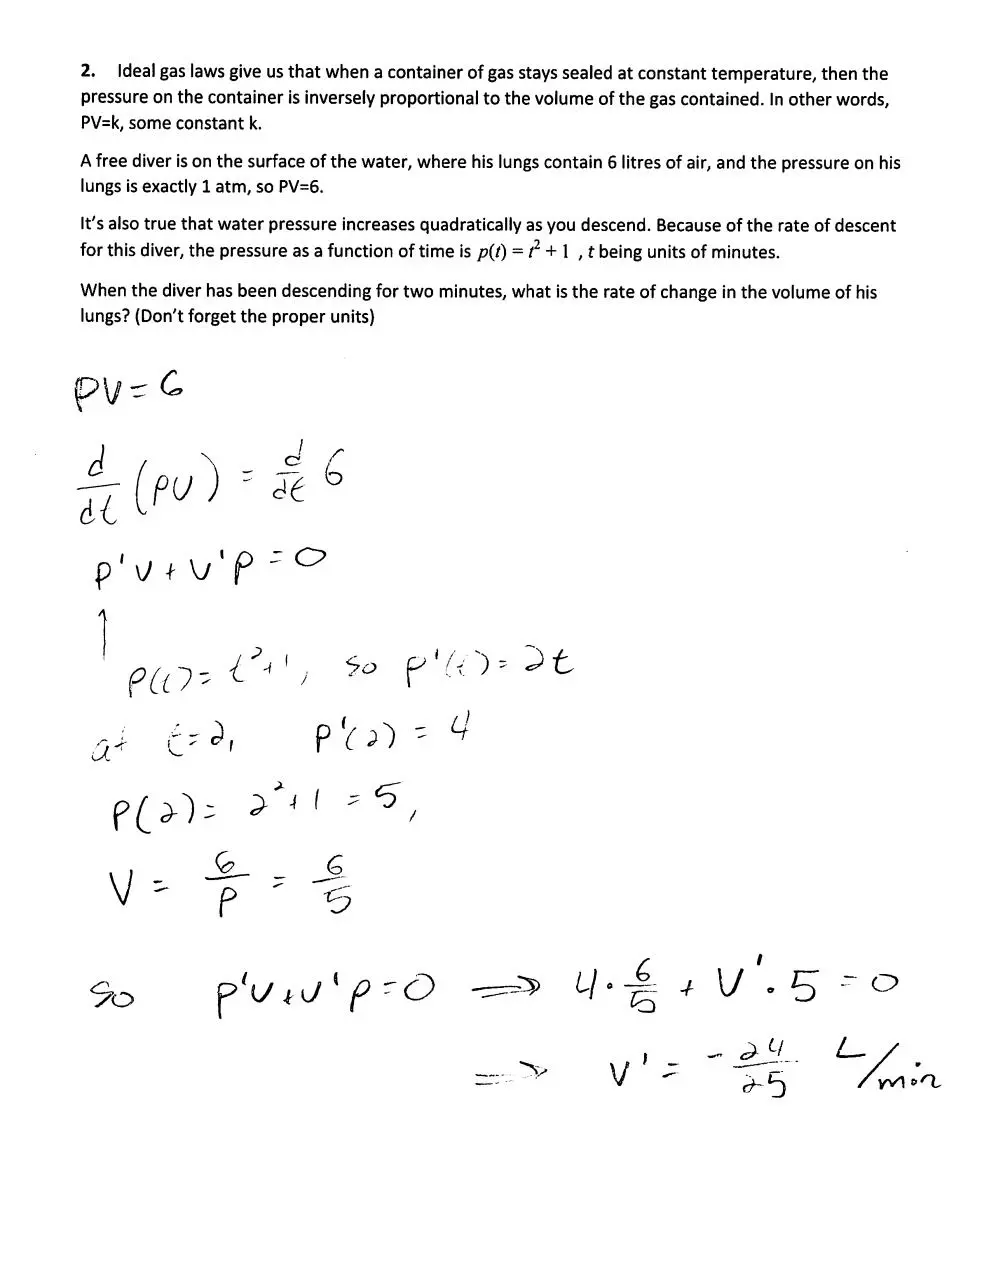 2. Ideal gas laws give us that when a container of gas stays sealed at constant temperature, then the
pressure on the container is inversely proportional to the volume of the gas contained. In other words,
PV=k, some constant k.
A free diver is on the surface of the water, where his lungs contain 6 litres of air, and the pressure on his
lungs is exactly 1 atm, so PV=6.
It's also true that water pressure increases quadratically as you descend. Because of the rate of descent
for this diver, the pressure as a function of time is p(t) = t² + 1 , t being units of minutes.
When the diver has been descending for two minutes, what is the rate of change in the volume of his
lungs? (Don't forget the proper units)
PV = 6
d/dt (PV) = d/dt 6
P'V + V'P = 0
↑
P(t) = t²+1, so P'(t) = 2t
at t=2, P'(2) = 4
P(2) = 2²+1 = 5,
V = 6/P = 6/5
so P'V+V'P=0 ⟹ 4·6/5 + V'·5 = 0
⟹ V' = -24/25 L/min